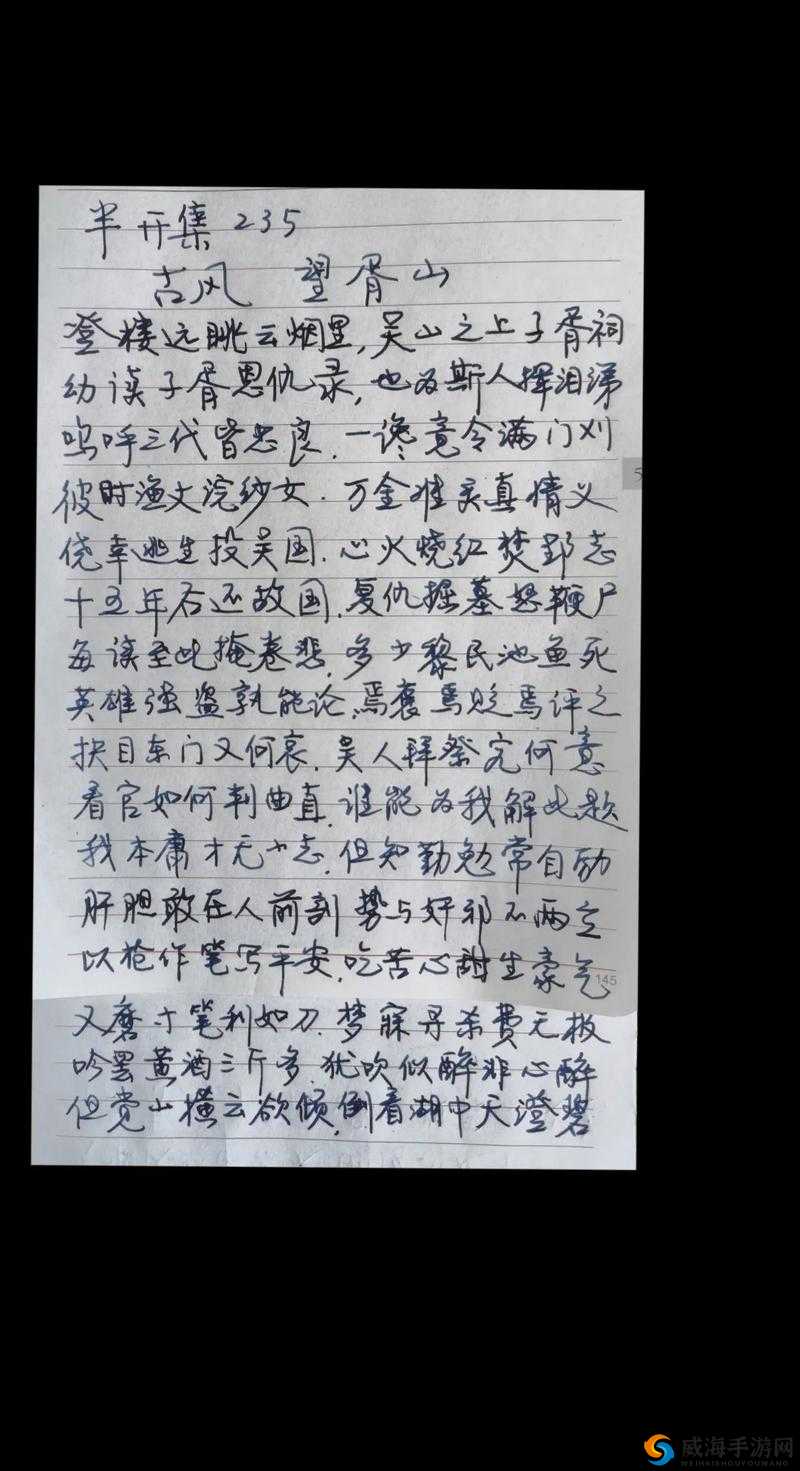 半开集 235
古风 望胥山
登楼远眺云烟里,吴山之上子胥祠
幼读子胥恩仇录,也为斯人挥泪涕
呜呼三代皆忠良,一谗竟令满门刈
彼时渔丈浣纱女.万金难买真情义
侥幸逃生投吴国.心火烧红焚郢志
十五年后还故国.复仇掘墓怒鞭尸
每读至此掩卷悲.多少黎民池鱼死
英雄强盗孰能论,焉褒焉贬焉评之
抉目东门又何哀.吴人拜祭究何意
看官如何判曲直.谁能为我解此题
我本庸才无大志.但知勤勉常自励
肝胆敢在人前剖 势与奸邪不两立
以枪作笔写平安.吃苦心甜生豪气
145
又磨寸笔利如刀.梦寐寻杀费无极
吟罢黄酒三斤多.犹吹似醉非心醉
但觉山横云欲倾.倒看湖中天澄碧
威海手游网
WEIHAISHOUYOUWANG